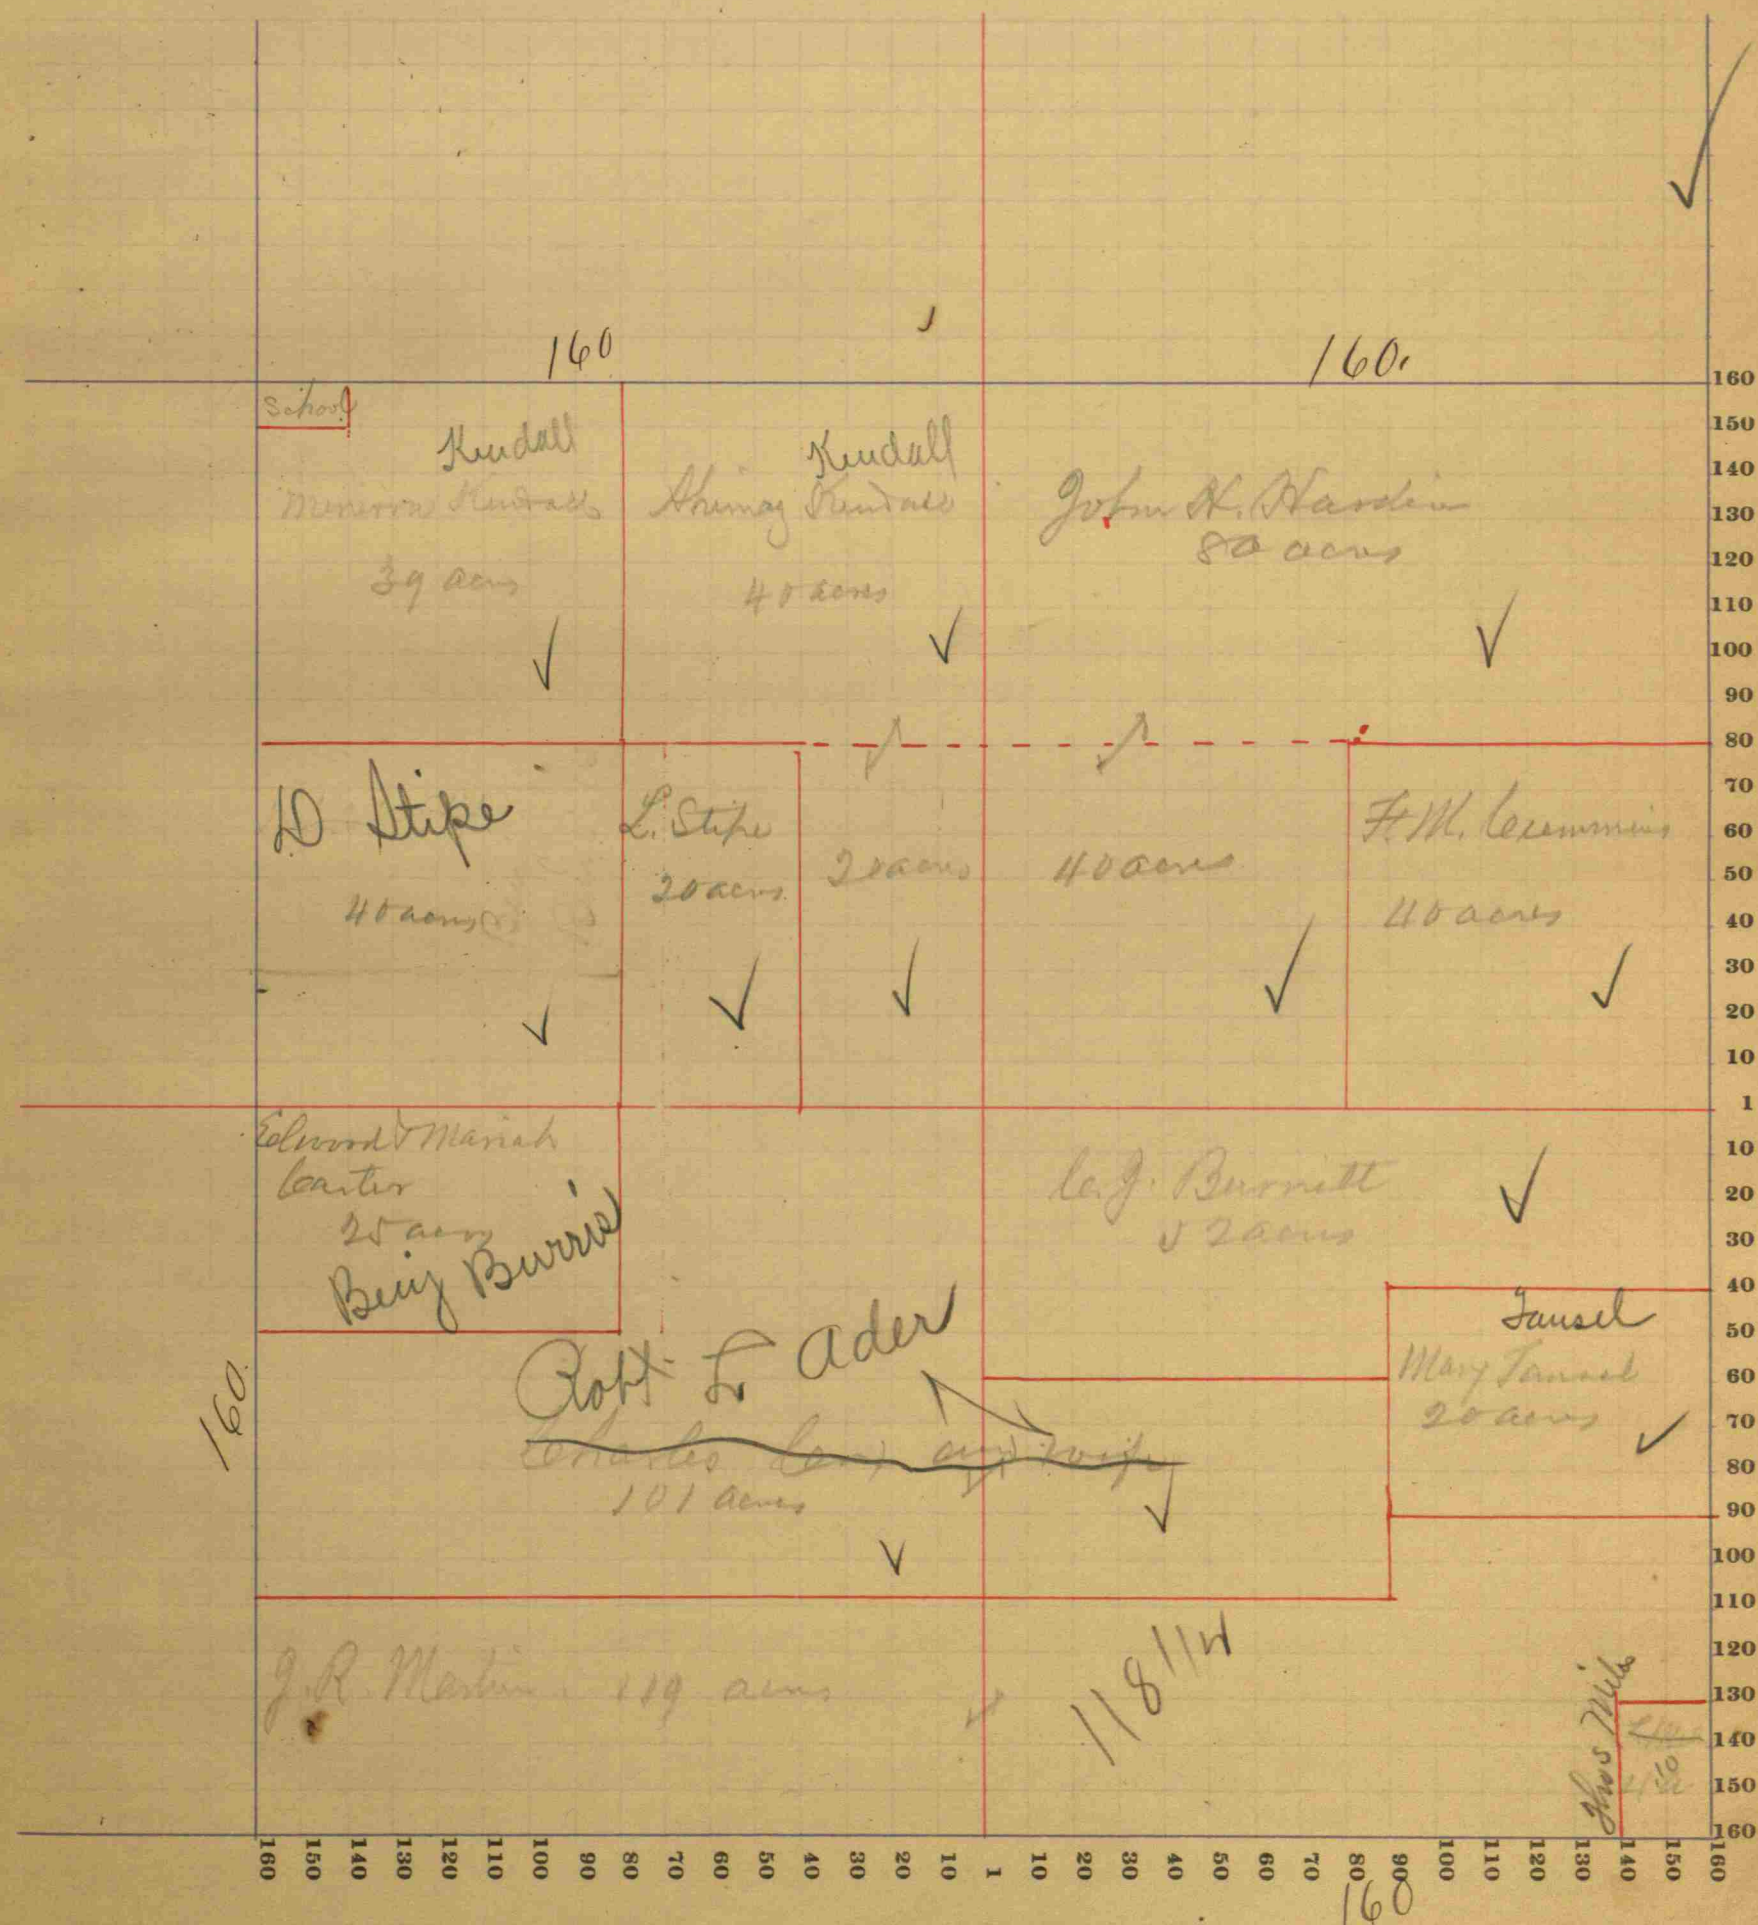 160
160.
School
Kendall
Kendall
Minerva Kendall
39 acres
Kendall
40 acres
John H. Hardin
80 acres
D Stipe
40 acres
L. Stipe
20 acres
20 acres
40 acres
F. M. Cummins
40 acres
Elwood & Mariah
Carter
25 acres
Benj Burris
C. J. Burnett
52 acres
Tansel
Mary Tansel
20 acres
Robt Ader
Charles and wife
101 acres
J. R. Martin 119 acres
118 1/4
Thos Miles
160.
160
150
140
130
120
110
100
90
80
70
60
50
40
30
20
10
1
10
20
30
40
50
60
70
80
90
100
110
120
130
140
150
160
160 150 140 130 120 110 100 90 80 70 60 50 40 30 20 10 1 10 20 30 40 50 60 70 80 90 100 110 120 130 140 150 160
160